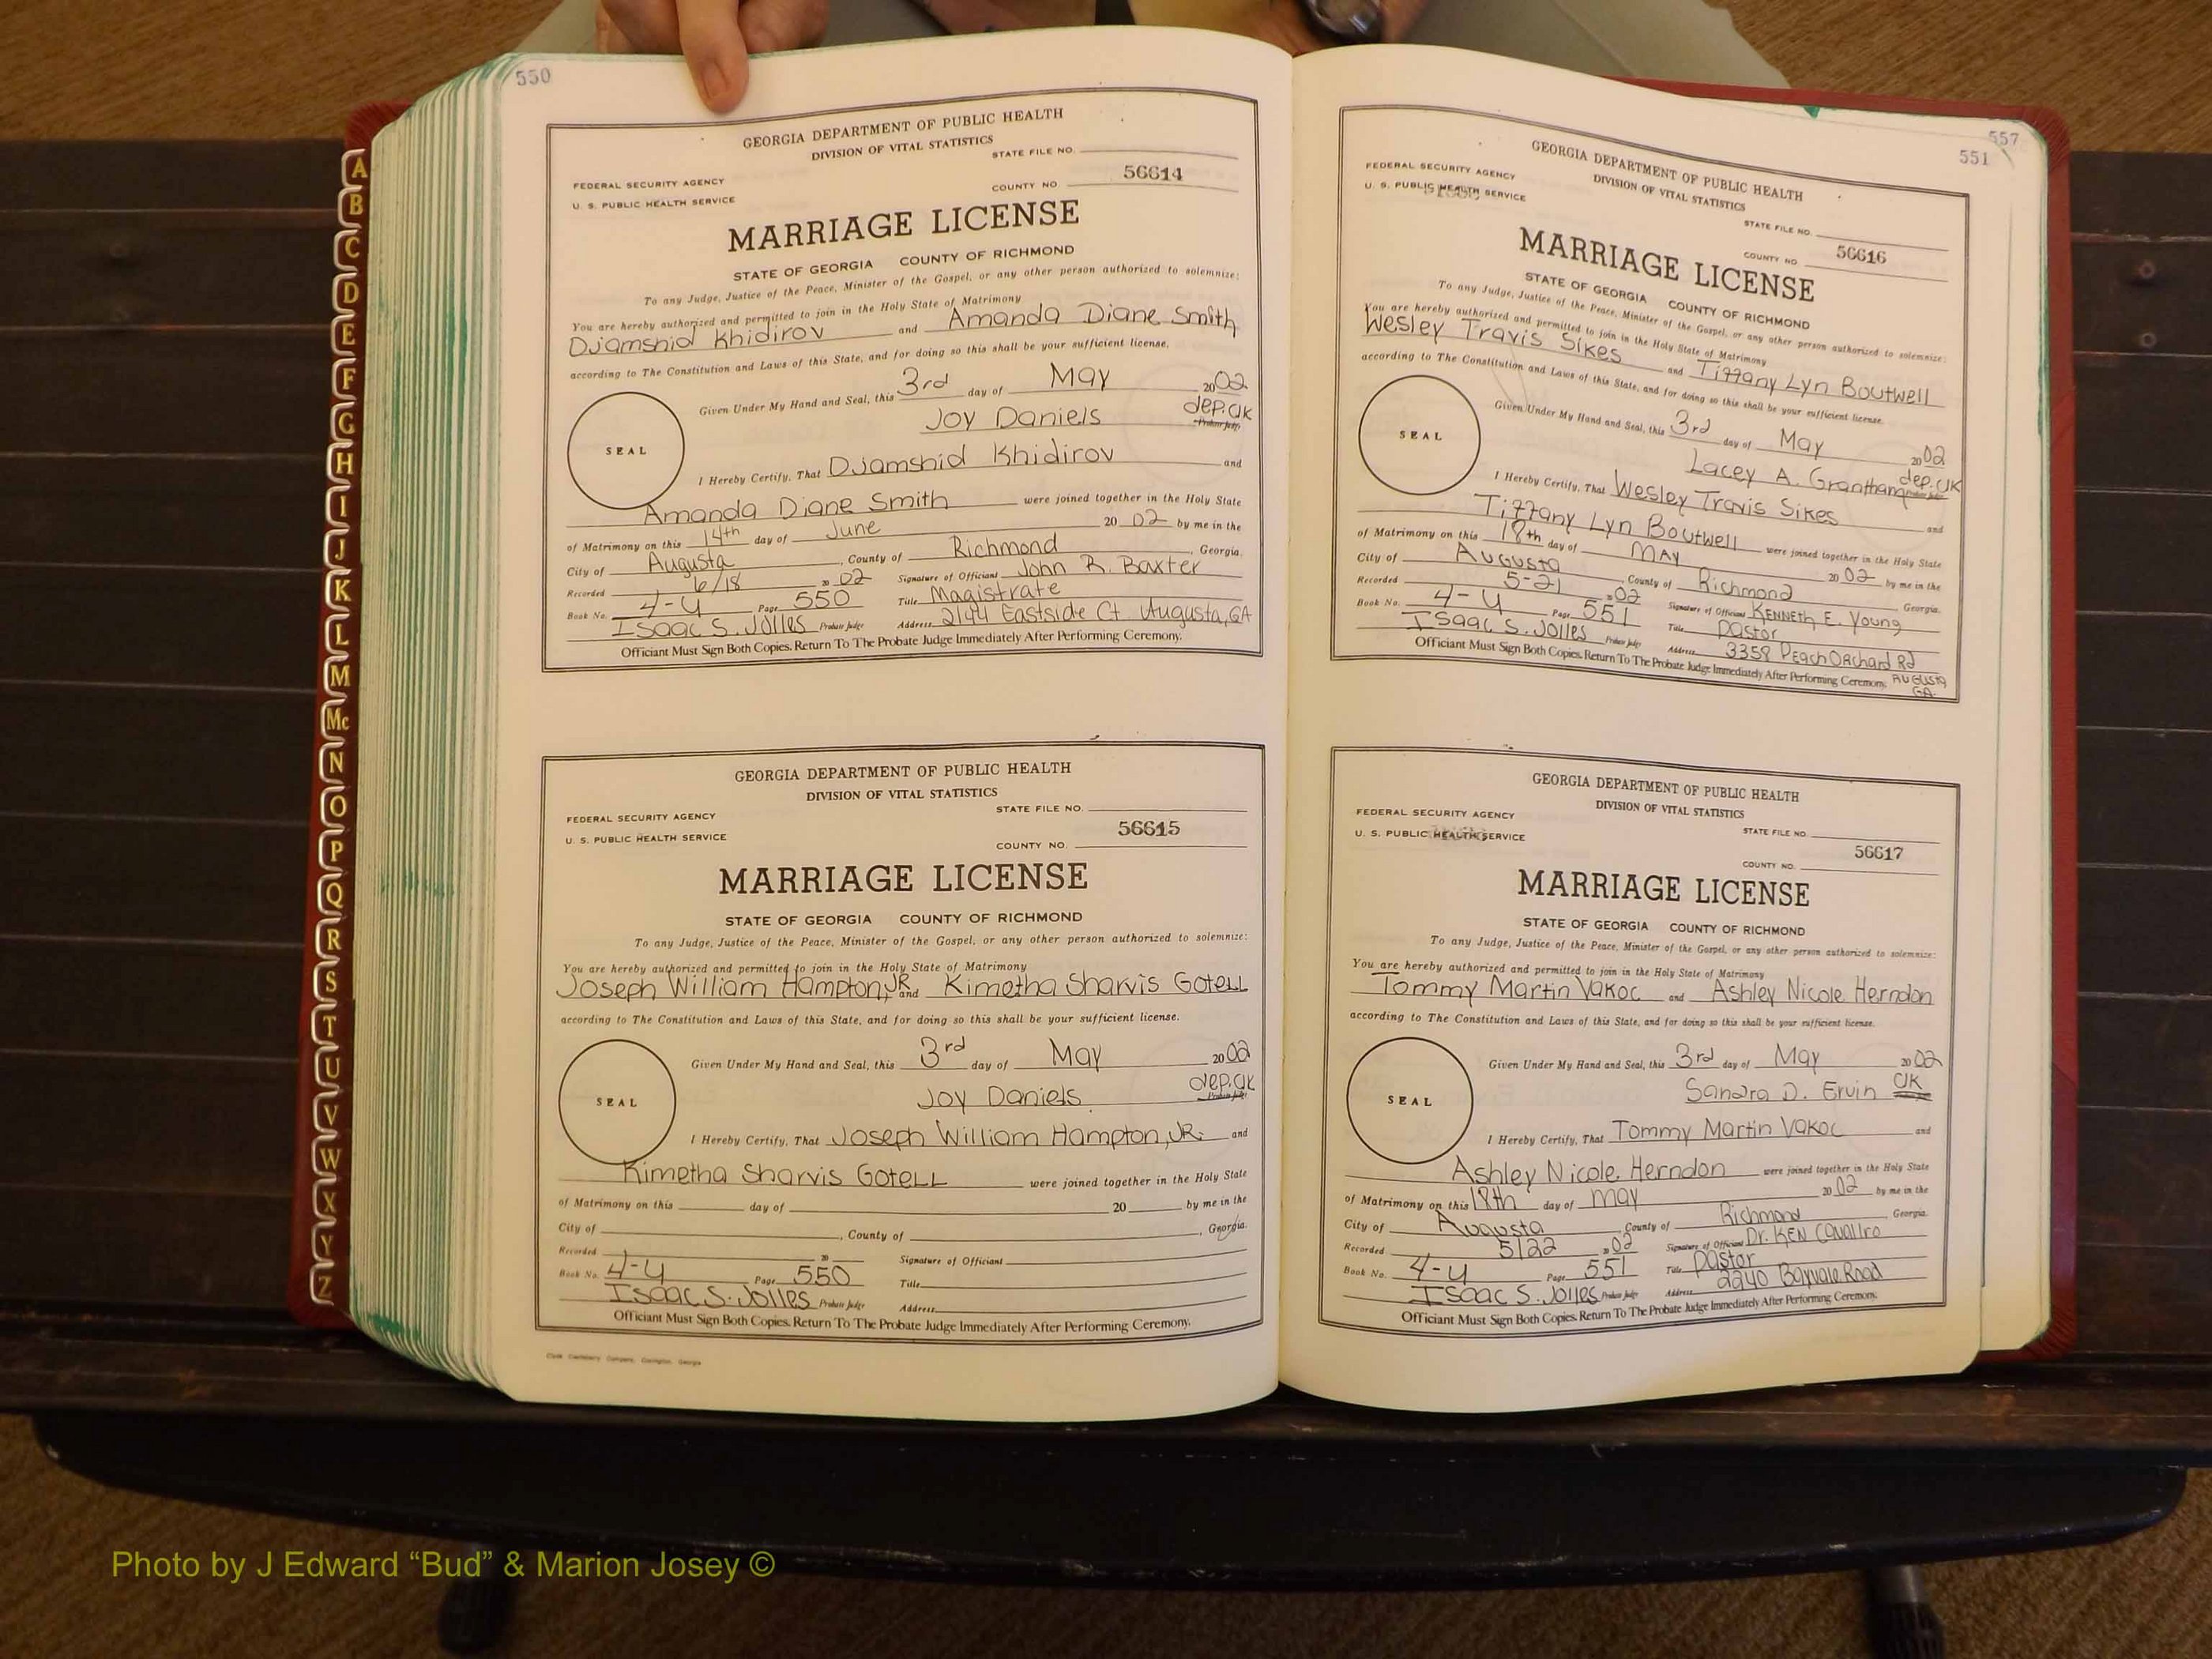 550
GEORGIA DEPARTMENT OF PUBLIC HEALTH
DIVISION OF VITAL STATISTICS
STATE FILE NO.
FEDERAL SECURITY AGENCY
COUNTY NO 56614
U. S. PUBLIC HEALTH SERVICE
MARRIAGE LICENSE
STATE OF GEORGIA COUNTY OF RICHMOND
To any Judge, Justice of the Peace, Minister of the Gospel, or any other person authorized to solemnize:
You are hereby authorized and permitted to join in the Holy State of Matrimony
Djamshid Khidirov and Amanda Diane Smith
according to The Constitution and Laws of this State, and for doing so this shall be your sufficient license.
Given Under My Hand and Seal, this 3rd day of May 2002
Joy Daniels dep.clk
Probate Judge
SEAL
I Hereby Certify, That Djamshid Khidirov and
Amanda Diane Smith were joined together in the Holy State
of Matrimony on this 14th day of June 20 02 by me in the
City of Augusta, County of Richmond, Georgia.
Recorded 6/18 20 02 Signature of Officiant John R. Baxter
Book No. 4-U Page 550 Title Magistrate
Isaac S. Jolles Probate Judge Address 2144 Eastside Ct. Augusta, GA
Officiant Must Sign Both Copies. Return To The Probate Judge Immediately After Performing Ceremony.
GEORGIA DEPARTMENT OF PUBLIC HEALTH
DIVISION OF VITAL STATISTICS
STATE FILE NO.
FEDERAL SECURITY AGENCY
56615
U. S. PUBLIC HEALTH SERVICE
COUNTY NO.
MARRIAGE LICENSE
STATE OF GEORGIA COUNTY OF RICHMOND
To any Judge, Justice of the Peace, Minister of the Gospel, or any other person authorized to solemnize:
You are hereby authorized and permitted to join in the Holy State of Matrimony
Joseph William Hampton, JR. and Kimetha Sharvis Gotell
according to The Constitution and Laws of this State, and for doing so this shall be your sufficient license.
Given Under My Hand and Seal, this 3rd day of May 2002
Joy Daniels dep.clk
Probate Judge
SEAL
I Hereby Certify, That Joseph William Hampton, JR. and
Kimetha Sharvis Gotell were joined together in the Holy State
of Matrimony on this day of 20 by me in the
City of , County of , Georgia.
Recorded 20 Signature of Officiant
Book No. 4-U Page 550 Title
Isaac S. Jolles Probate Judge Address
Officiant Must Sign Both Copies. Return To The Probate Judge Immediately After Performing Ceremony.
557
551
GEORGIA DEPARTMENT OF PUBLIC HEALTH
DIVISION OF VITAL STATISTICS
FEDERAL SECURITY AGENCY
U. S. PUBLIC HEALTH SERVICE
STATE FILE NO.
COUNTY NO. 56616
MARRIAGE LICENSE
STATE OF GEORGIA COUNTY OF RICHMOND
To any Judge, Justice of the Peace, Minister of the Gospel, or any other person authorized to solemnize:
You are hereby authorized and permitted to join in the Holy State of Matrimony
Wesley Travis Sikes and Tiffany Lyn Boutwell
according to The Constitution and Laws of this State, and for doing so this shall be your sufficient license.
Given Under My Hand and Seal, this 3rd day of May 2002
Lacey A. Grantham dep.clk
Probate Judge
SEAL
I Hereby Certify, That Wesley Travis Sikes and
Tiffany Lyn Boutwell were joined together in the Holy State
of Matrimony on this 18th day of MAY 20 02 by me in the
City of Augusta, County of Richmond Georgia.
Recorded 5-21 20 02 Signature of Officiant KENNETH E. Young
Book No. 4-U Page 551 Title Pastor
Isaac S. Jolles Probate Judge Address 3358 Peach Orchard Rd
Augusta
GA.
Officiant Must Sign Both Copies. Return To The Probate Judge Immediately After Performing Ceremony.
GEORGIA DEPARTMENT OF PUBLIC HEALTH
DIVISION OF VITAL STATISTICS
FEDERAL SECURITY AGENCY
STATE FILE NO
U. S. PUBLIC HEALTH SERVICE
56617
COUNTY NO.
MARRIAGE LICENSE
STATE OF GEORGIA COUNTY OF RICHMOND
To any Judge, Justice of the Peace, Minister of the Gospel, or any other person authorized to solemnize:
You are hereby authorized and permitted to join in the Holy State of Matrimony
Tommy Martin Vakoc and Ashley Nicole Herndon
according to The Constitution and Laws of this State, and for doing so this shall be your sufficient license.
Given Under My Hand and Seal, this 3rd day of May 2002
Sandra D. Ervin Clk
SEAL
I Hereby Certify, That Tommy Martin Vakoc and
Ashley Nicole Herndon were joined together in the Holy State
of Matrimony on this 18th day of May 20 02 by me in the
City of Augusta, County of Richmond Georgia.
Recorded 5/22 20 02 Signature of Officiant Dr. KEN
Book No. 4-U Page 551 Title Pastor
Isaac S. Jolles Probate Judge Address 2240 Bayvale Road
Officiant Must Sign Both Copies. Return To The Probate Judge Immediately After Performing Ceremony.
A
B
C
D
E
F
G
H
I
J
K
L
M
Mc
N
O
P
Q
R
S
T
U
V
W
X
Y
Z
Photo by J Edward “Bud” & Marion Josey ©